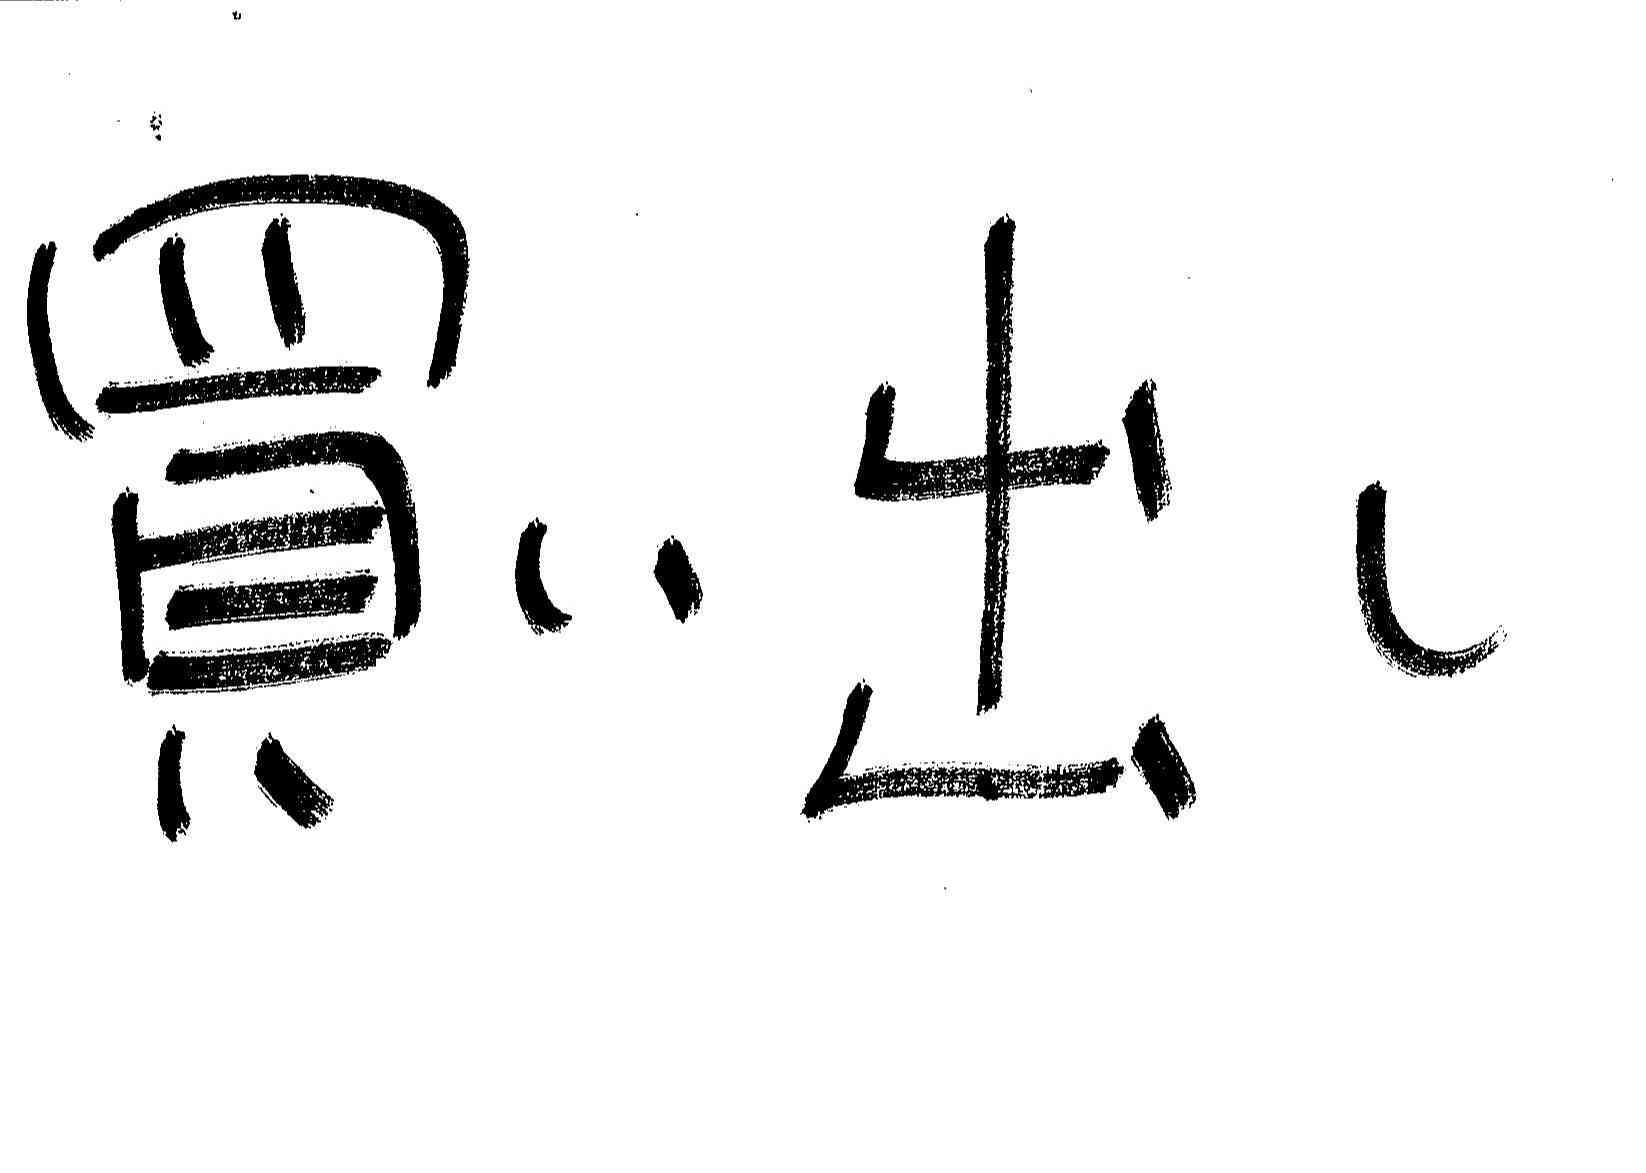 買い出し